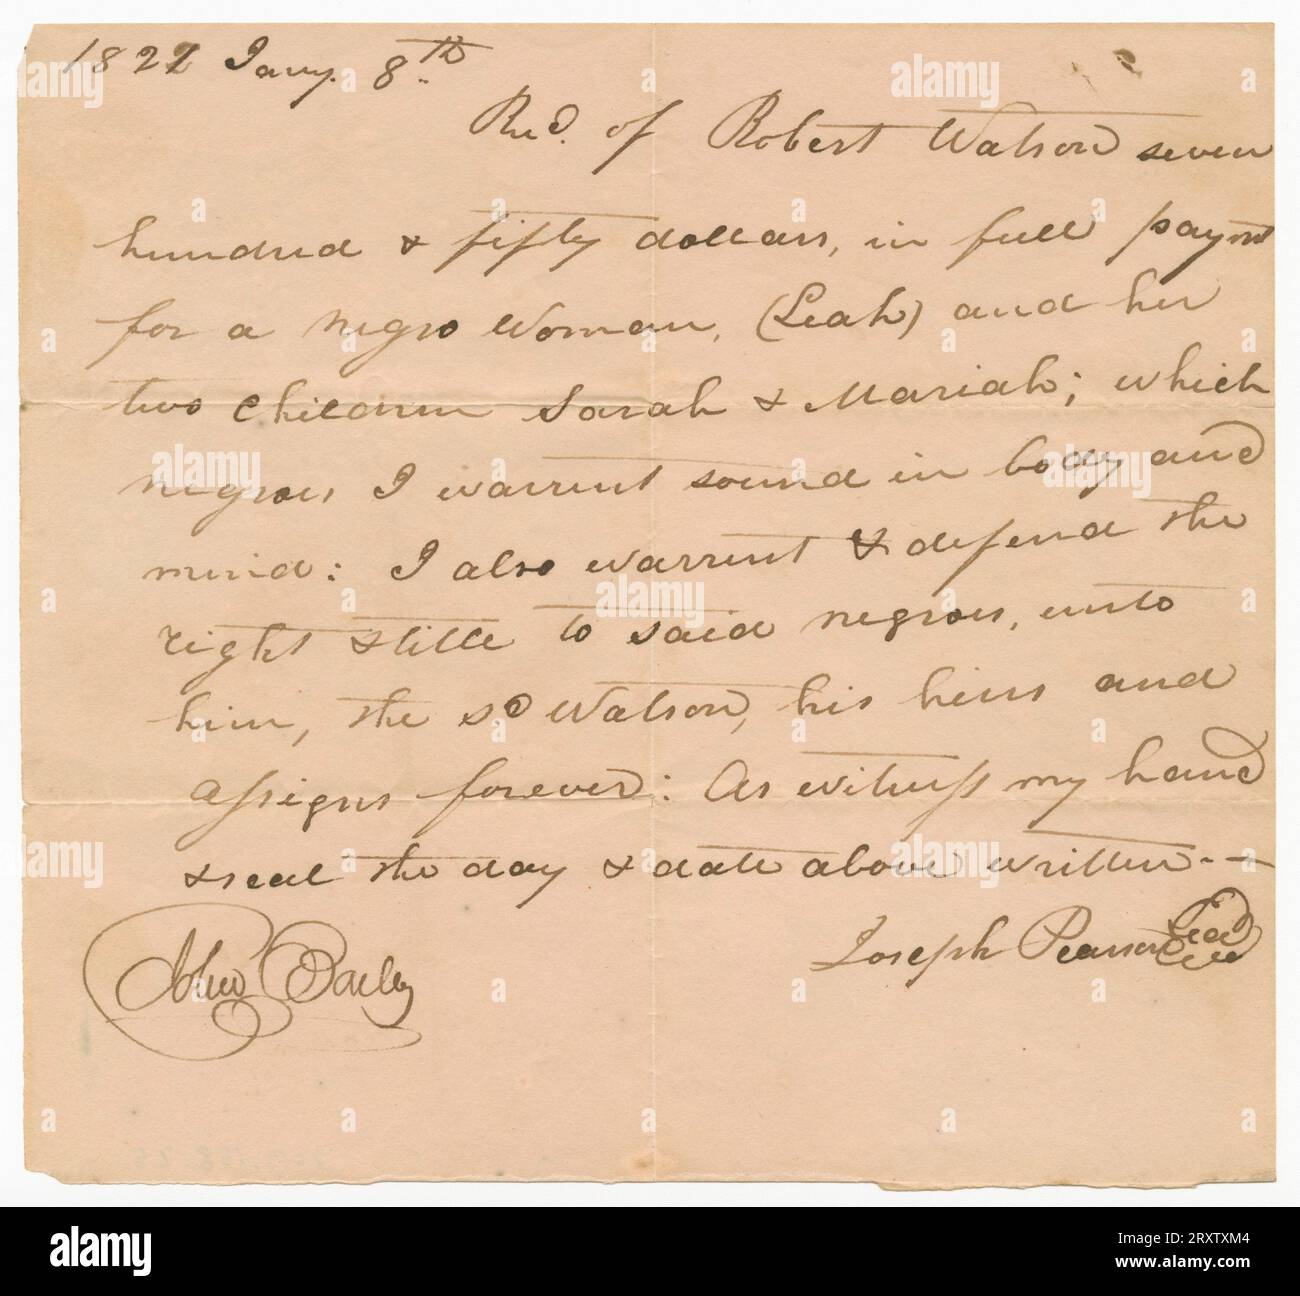 1822 Jany. 8th
Recd. of Robert Watson seven
hundred & fifty dollars, in full paymt
for a negro Woman, (Leah) and her
two Children Sarah & Mariah; which
negroes I warrent sound in body and
mind: I also warrent & defend the
right & title to said negroes, unto
him, the sd Watson, his heirs and
assigns forever: As witness my hand
& seal the day & date above written--
Joseph Pearson Seal
John Bailey
alamy
Image ID: 2RXTXM4
www.alamy.com